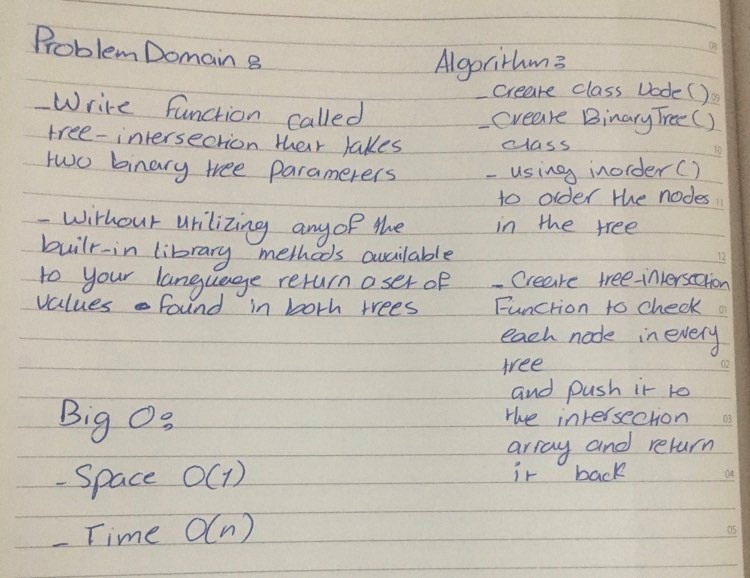 Problem Domain :
- Write function called
tree-intersection that takes
two binary tree parameters
- Without utilizing any of the
built-in library methods available
to your language return a set of
values found in both trees
Big O :
- Space O(1)
- Time O(n)
Algorithm :
- Create class Node()
- Create BinaryTree()
class
- using inorder()
to order the nodes
in the tree
- Create tree-intersection
Function to check
each node in every
tree
and push it to
the intersection
array and return
it back
08
09
10
11
12
01
02
03
04
05